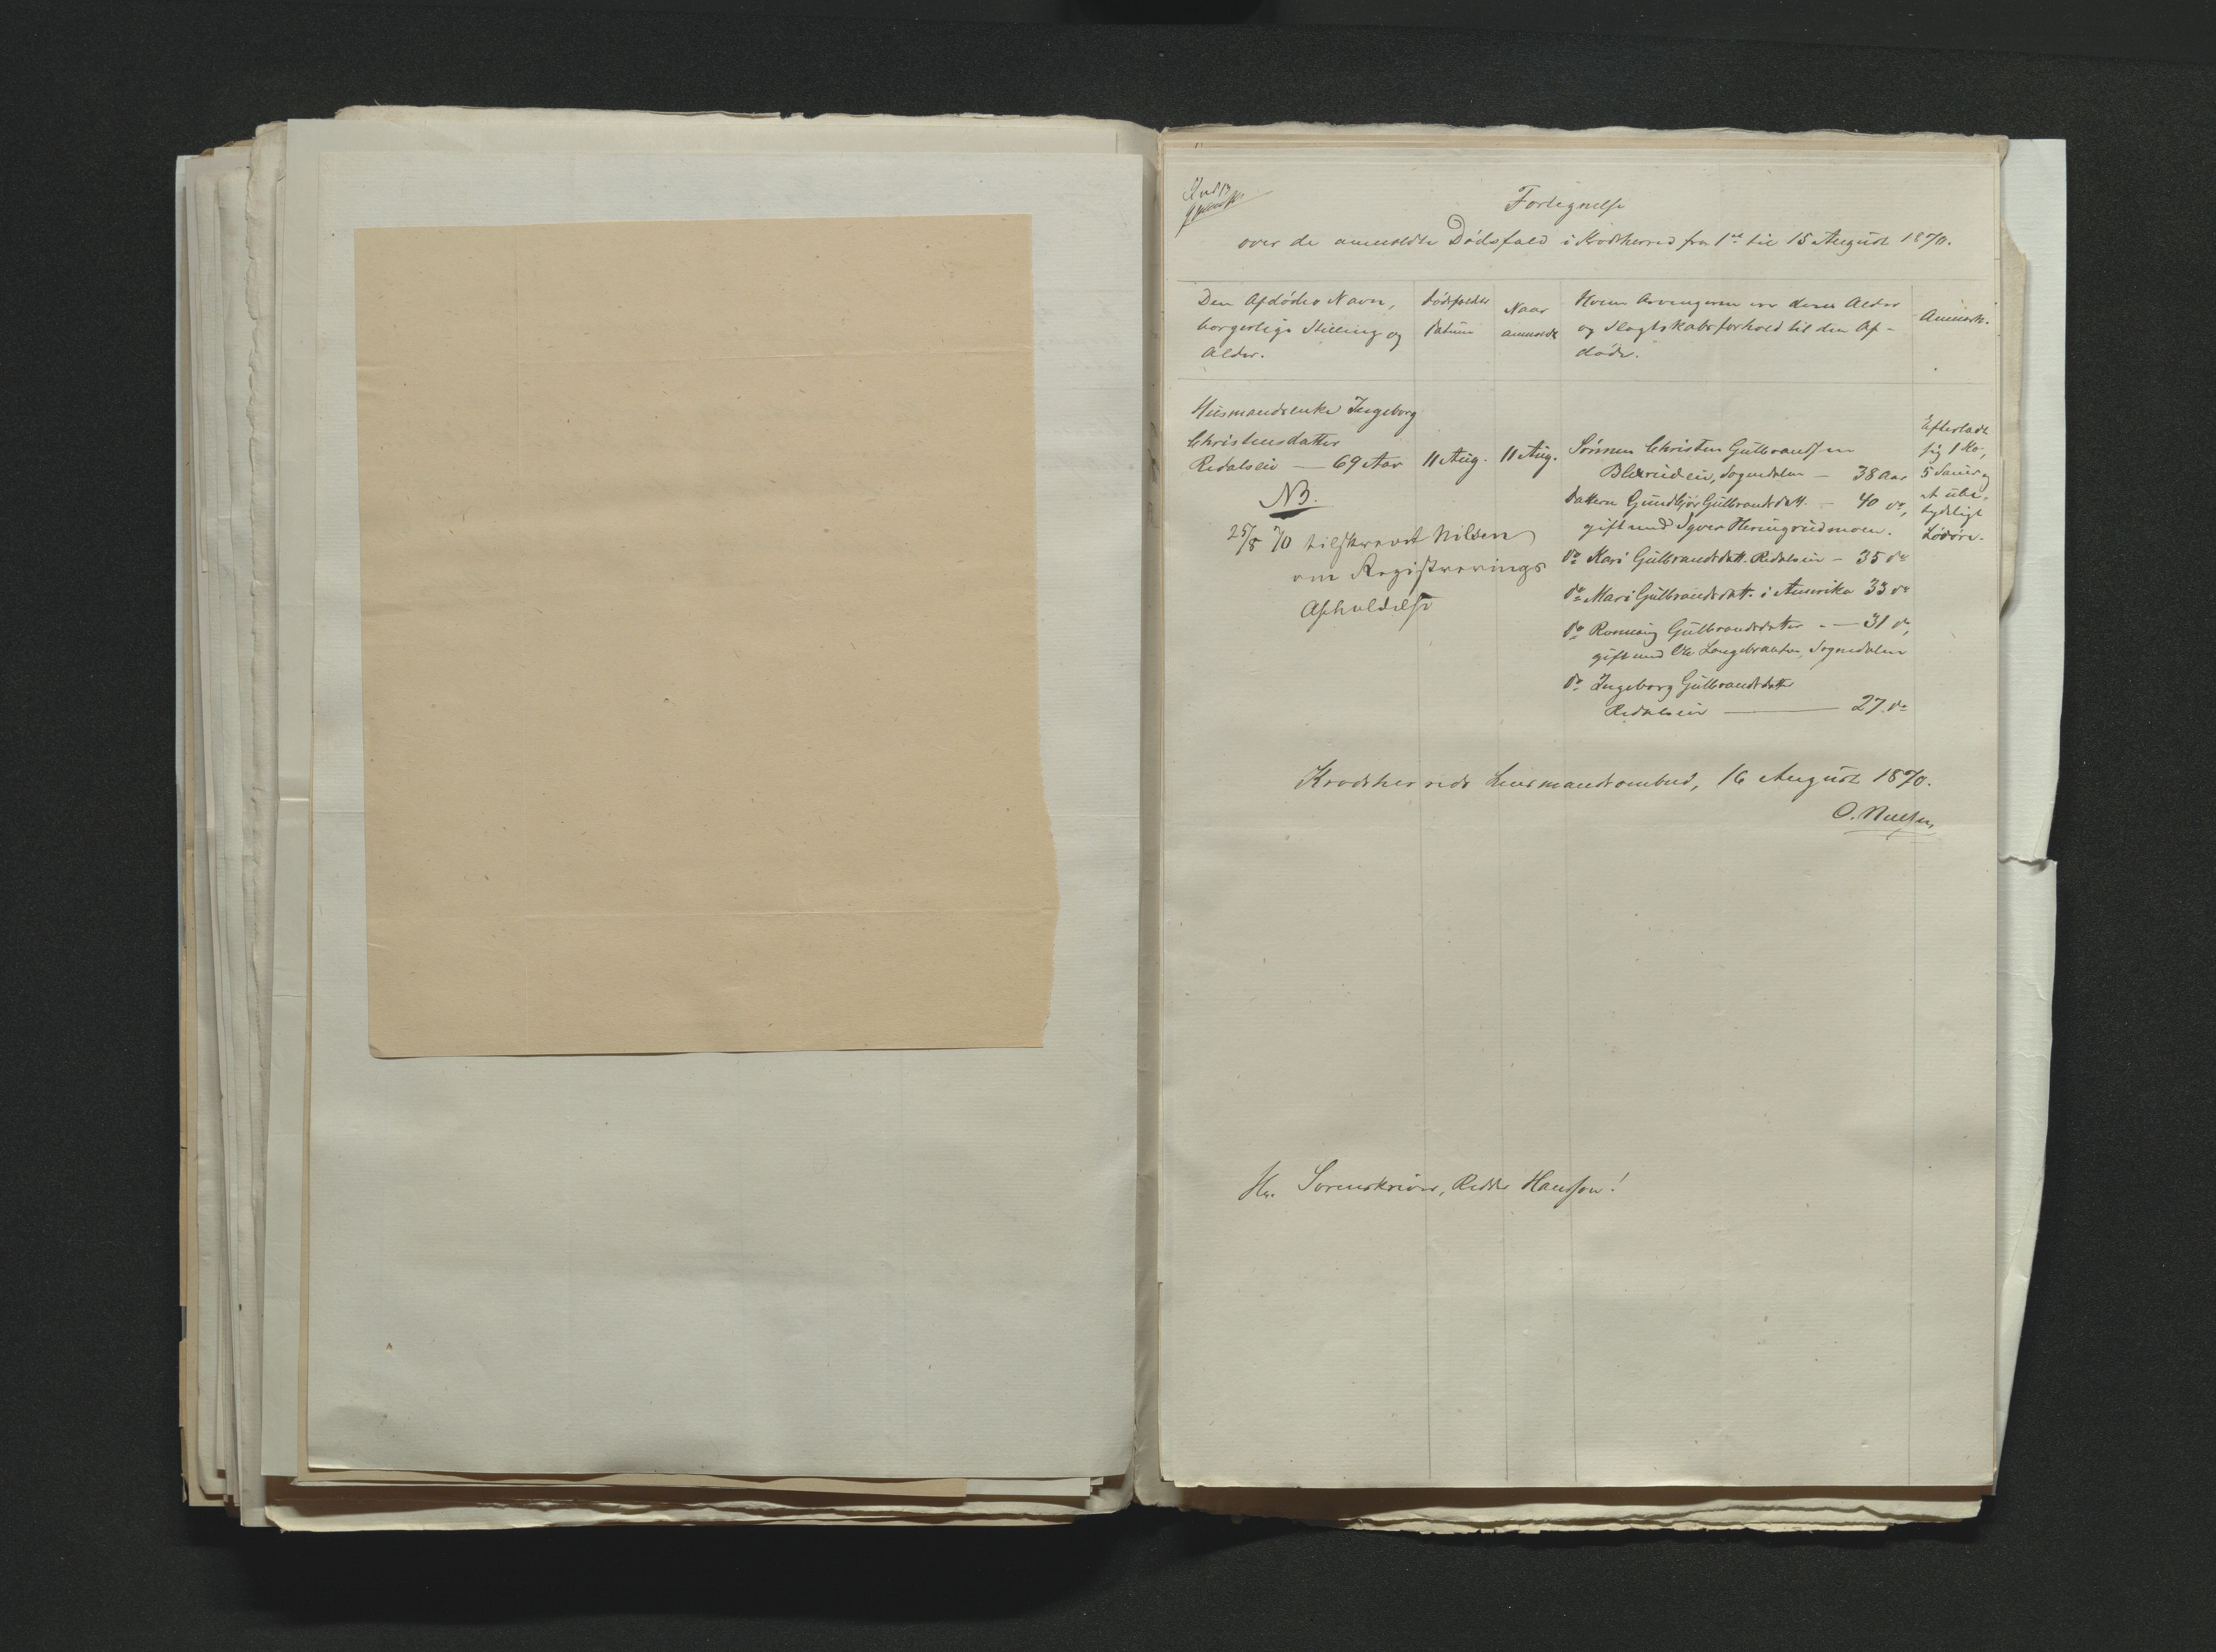 Fortegnelse
over de anmeldte Dødsfald i Krodsherred fra 1ste til 15 August 1870.
Den Afdødes Navn,
borgerlige Stilling og
Alder.
Dødsfaldets
Datum
Naar
anmeldt
Hvem Arvingerne ere deres Alder
og Slægtskabsforhold til den Af-
døde.
Anmærk.
Husmandsenke Ingeborg
Christensdatter
Redalseie — 69 Aar
11 Aug.
11 Aug.
Sönnen Christen Gulbrandsen
eie, Sognedalen — 38 Aar
Datteren Gundbjör Gulbrandsdatt. — 40 do,
gift med Iver Heringrudmoen.
do Kari Gulbrandsdatt. Redalseie — 35 do
do Mari Gulbrandsdatt. i Amerika 33 do
do Ronnaug Gulbrandsdatter — 31 do,
gift med Ole Langebraaten, Sognedalen
do Ingeborg Gulbrandsdatter
Redalseie — 27 do
Efterladt
sig 1 Ko,
5 Sauer og
et ube-
tydeligt
Lösöre.
NB.
25/8 70 tilskrevet Nilsen
om Registrerings
Afholdelse
Krodsherreds Lensmandsombud, 16 August 1870.
O. Nielsen
Hr. Sorenskriver, Ridder Hansson!